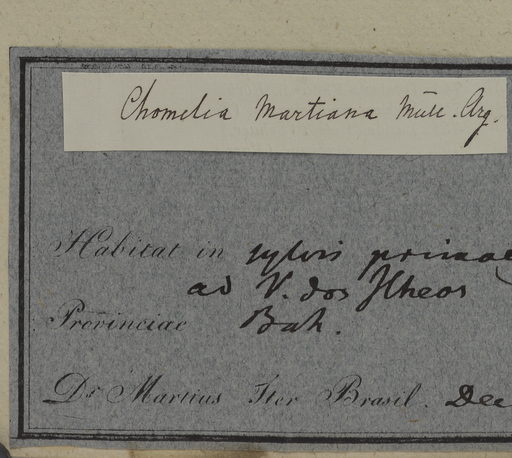 Chomelia Martiana Müll. Arg.
Habitat in sylvis primae
ad V. dos Ilheos
Provinciae Bah.
Dr Martius Iter Brasil. Dec